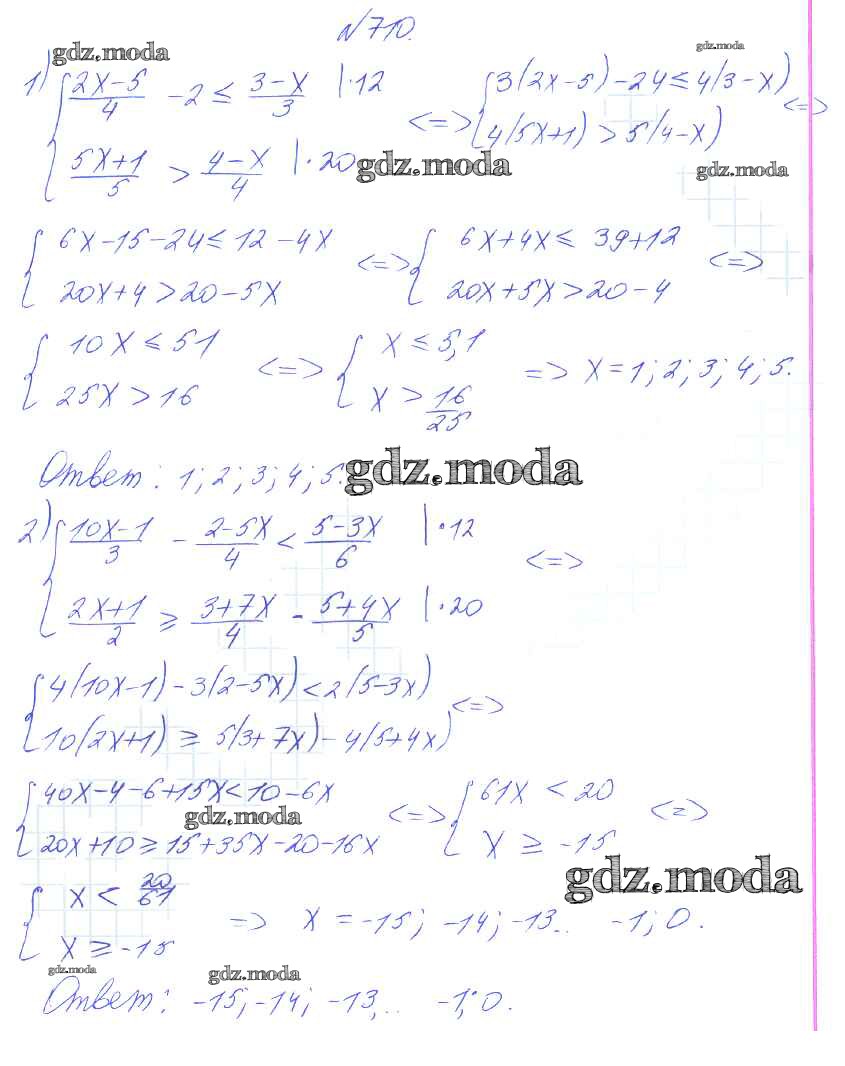 №710.
gdz.moda
gdz.moda
1) { (2x-5)/4 - 2 ≤ (3-x)/3 |·12
{ (5x+1)/5 > (4-x)/4 |·20
<=> { 3(2x-5)-24 ≤ 4(3-x)
{ 4(5x+1) > 5(4-x) <=>
gdz.moda
gdz.moda
{ 6x-15-24 ≤ 12-4x <=> { 6x+4x ≤ 39+12 <=>
{ 20x+4 > 20-5x { 20x+5x > 20-4
{ 10x ≤ 51 <=> { x ≤ 5,1 => x = 1; 2; 3; 4; 5.
{ 25x > 16 { x > 16/25
Ответ: 1; 2; 3; 4; 5.
gdz.moda
2) { (10x-1)/3 - (2-5x)/4 < (5-3x)/6 |·12 <=>
{ (2x+1)/2 ≥ (3+7x)/4 - (5+4x)/5 |·20
{ 4(10x-1)-3(2-5x) < 2(5-3x) <=>
{ 10(2x+1) ≥ 5(3+7x)-4(5+4x)
{ 40x-4-6+15x < 10-6x <=> { 61x < 20 <=>
gdz.moda
{ 20x+10 ≥ 15+35x-20-16x { x ≥ -15
gdz.moda
{ x < 20/61 => x = -15; -14; -13.. -1; 0.
{ x ≥ -15
gdz.moda
gdz.moda
Ответ: -15; -14; -13,.. -1; 0.